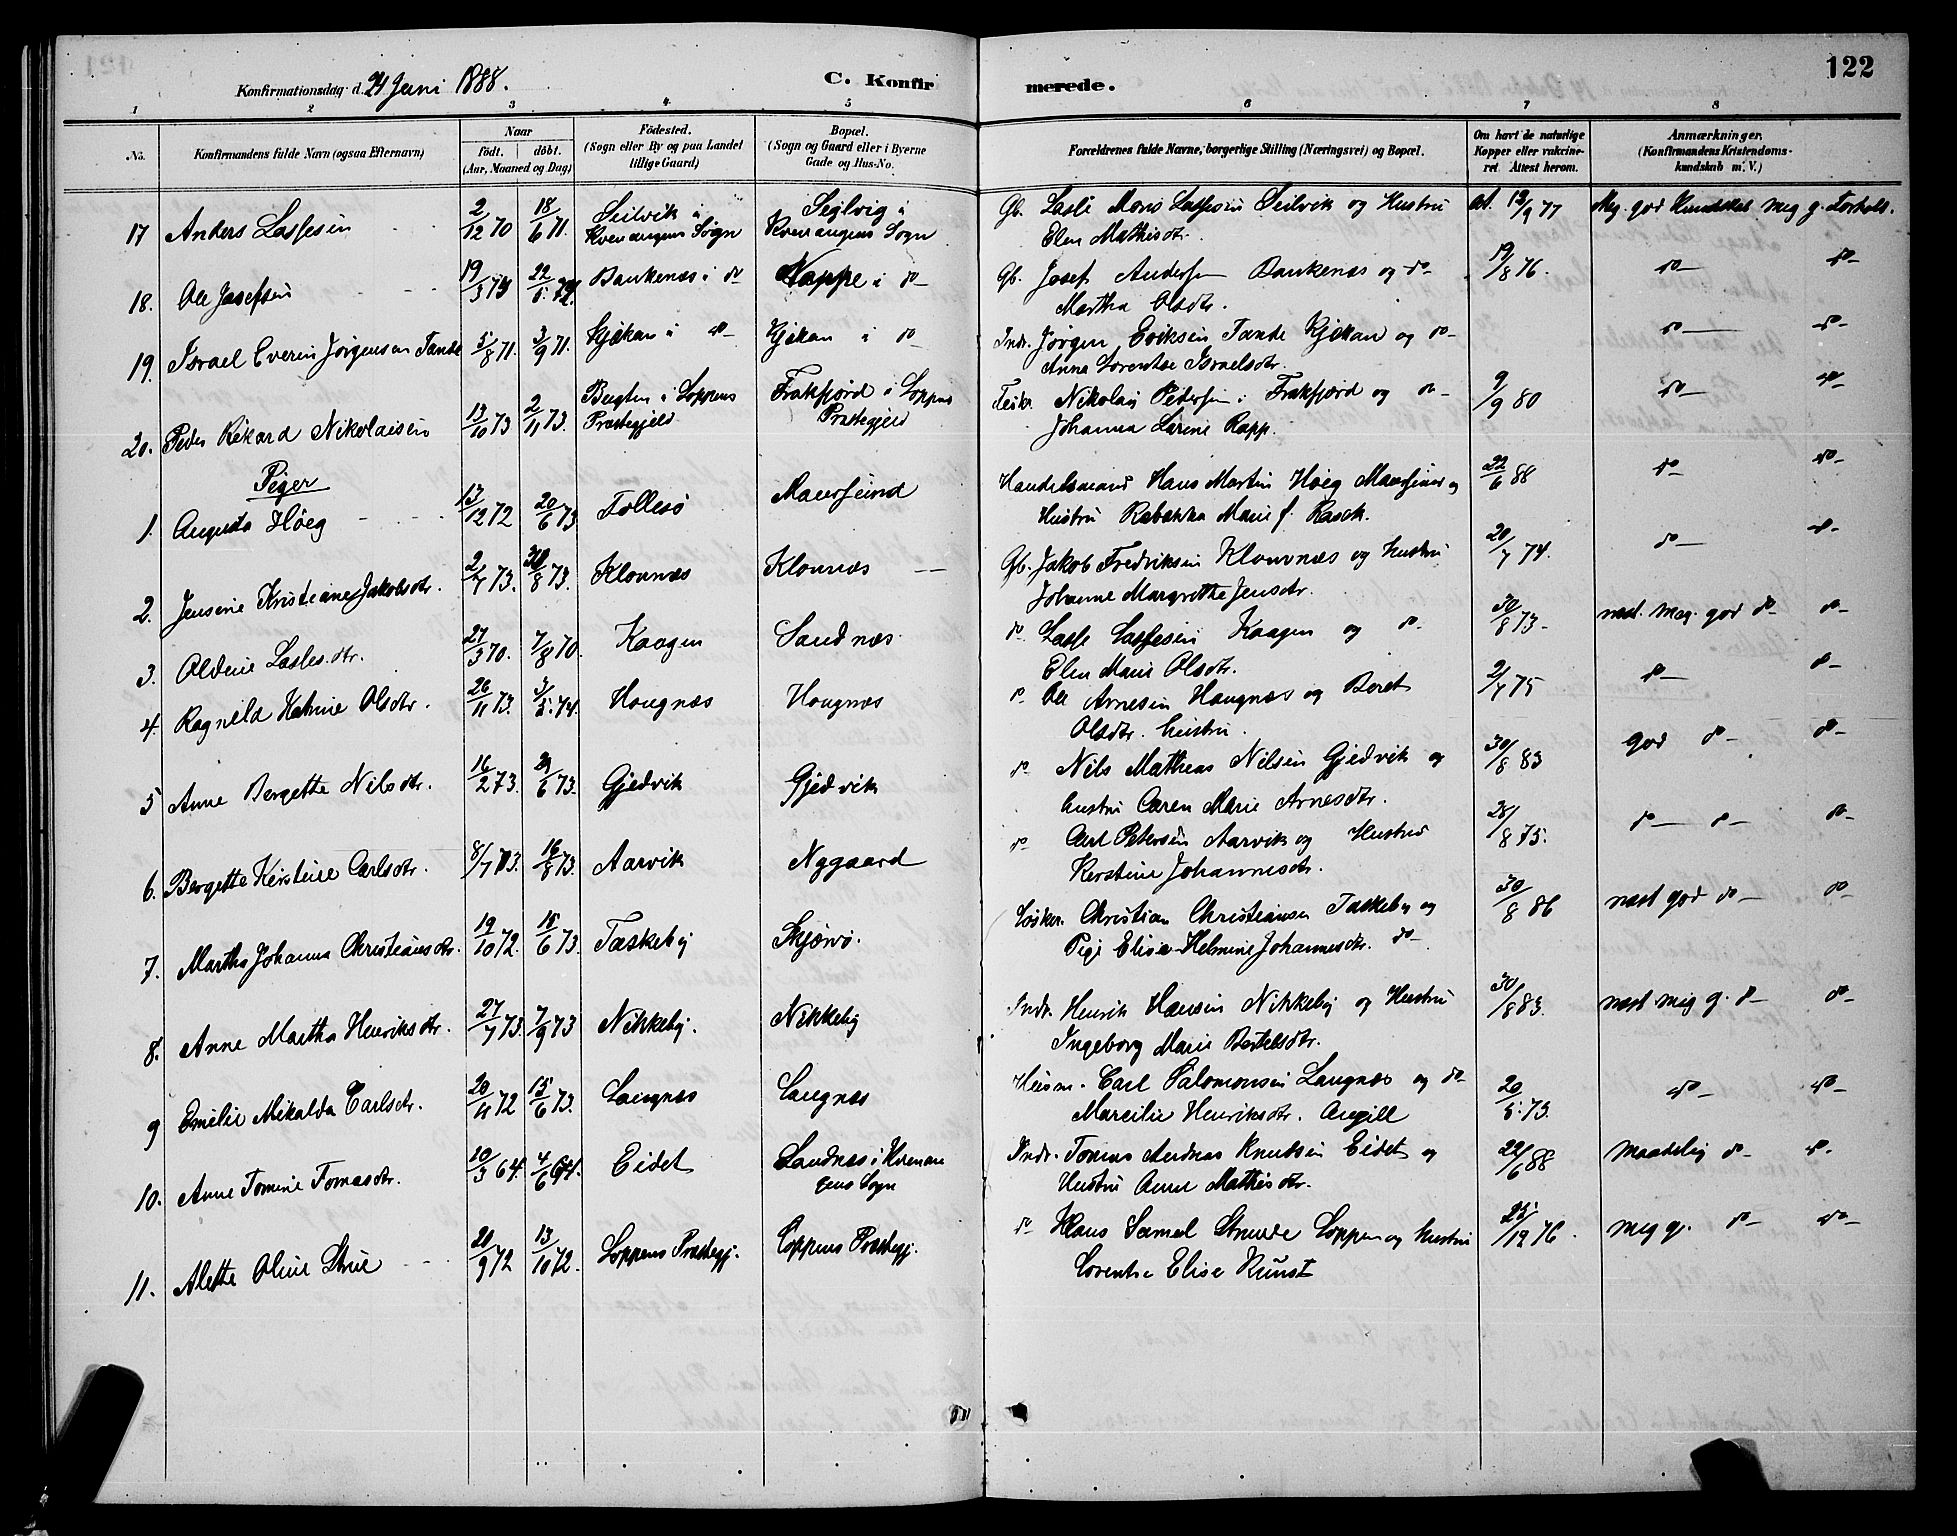 122
Konfirmationsdag d. 24 Juni 1888. C. Konfirmerede.
1 2 3 4 5 6 7 8
No. Konfirmandens fulde Navn (ogsaa Efternavn) Naar födt. döbt. (Aar, Maaned og Dag) Födested. (Sogn eller By og paa Landet tillige Gaard) Bopæl. (Sogn og Gaard eller i Byerne Gade og Hus-No. Forældrenes fulde Navne, borgerlige Stilling (Næringsvei) og Bopæl. Om havt de naturlige Kopper eller vakcineret. Attest herom. Anmærkninger. (Konfirmandens Kristendomskundskab m. V.)
17 Anders Lassesen 2/12 70 18/6 71. Seilvik i Kvenangens Sogn Seglvig i Kvenangens Sogn Gb. Lasse Mons Lassesen Seilvik og Hustru
Elen Mathisdtr. at. 12/9 77 Meg. god Kundskab meg g. Forhold.
18. Ole Josefsen 19/3 73 Bankenæs i do Nappe i do Gb. Josef Andersen Bankenæs og do
Martha Olsdtr. 19/8 76. do do
19. Israel Everin Jörgensen Tande 5/8 71. 3/9 71. Kjækan i do Kjækan i do Indr. Jörgen Eriksen Tande Kjækan og do
Anna Lorentse Israelsdtr. do do
20. Peder Rikard Nikolaisen 13/10 73 2/11 73. Bugten i Loppens Præstegjeld Frakfjord i Loppens Præstegjeld Nikolai Pedersen i Frakfjord og do
Johanna Larine Rapp. 9/9 80 do do
Piger
1. Augusta Höeg 13/12 72 20/6 73 Follesö Maursund Handelsmand Hans Martin Höeg Maursund og
Hustru Rebekka Marie f. Rasch. 22/6 88 do do
2. Jensine Kristiane Jakobsdtr. 2/7 73. 30/8 73. Klovnæs Klovnæs Gb. Jakob Fredriksen Klovnæs og Hustru
Johanne Margrethe Jensdtr. 20/7 74. do do
3. Oldine Lassesdtr. 27/3 70. 7/8 70. Kaagen Sandnæs do Lasse Lassesen Kaagen og do
Elen Marie Olsdtr. 30/8 73. næst. meg. god do do
4. Ragnild Katrine Olsdtr. 26/11 73. 3/5 74. Hougnæs Hougnæs do Ole Arnesen Hougnæs og Beret
Olsdtr. hustru. 2/7 75 do do
5 Anne Bergette Nilsdtr. 16/2 73. Gjedvik Gjedvik do Nils Mathias Nilsen Gjedvik og
hustru Caren Marie Arnesdtr. 30/8 83 god do do
6. Bergette Kirstine Carlsdtr. 8/7 73. 16/8 73. Aarvik Nygaard do Carl Petersen Aarvik og Hustru
Kerstine Johannesdtr. 28/8 75. do do do
7. Martha Johanna Christiansdtr. 19/10 72. 15/6 73. Taskeby Skjærvö. Löskar. Christian Christiansen Taskeby og
Pige Elise Helmine Johannesdtr. do 30/8 86 næst god do do
8. Anne Martha Henriksdtr. 27/7 73. 7/9 73 Nikkeby. Nikkeby Indr. Henrik Hansen Nikkeby og Hustru
Ingeborg Marie Bertelsdtr. 30/8 83. næst meg g. do do
9 Emelie Mikalda Carlsdtr. 20/4 72 15/6 73. Langnæs Langnæs Husm. Carl Salomonsen Langnæs og do
Marcilie Henriksdtr. Angell 20/5 73. do do
10. Anne Tomine Tomasdtr. 10/3 64. 4/6 64. Eidet Sandnæs i Kvenangens Sogn Indr. Tomas Andreas Knudsen Eidet og
Hustru Anne Mathisdtr. 22/6 88 maadelig do do
11. Alette Oline Strue 20/9 72 13/10 72. Loppens Præstegj. Loppens Præstegj. do Hans Samuel Struve Loppen og hustru
Lorentse Elise Kunst 25/12 76. meg g. do do